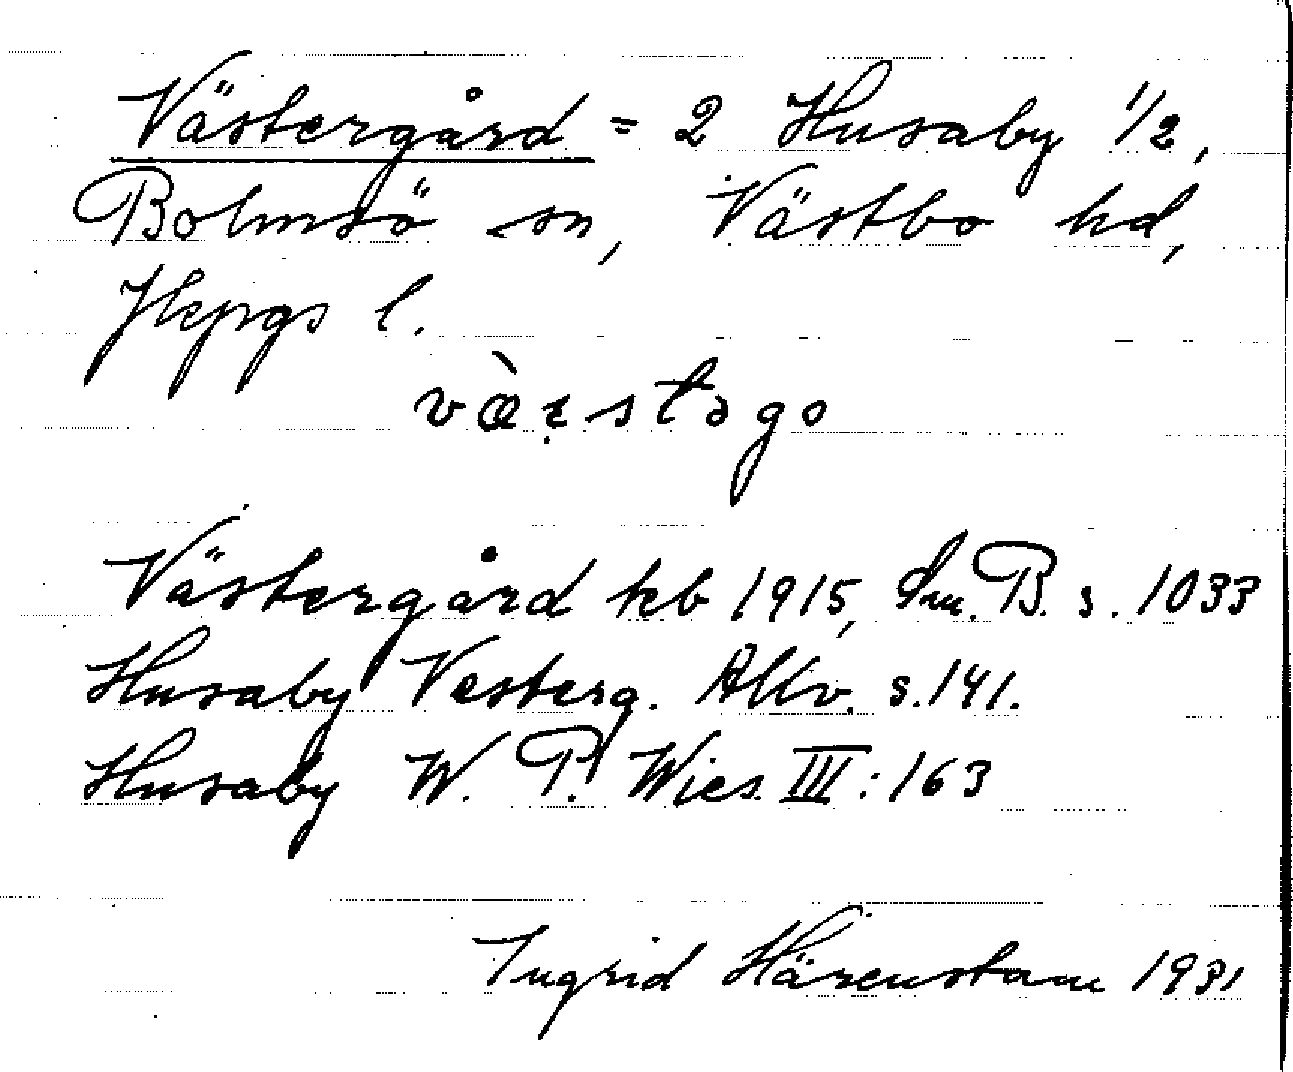 Västergård = 2 Husaby 1/2,
Bolmsö sn, Västbo hd,
Jkpgs l.
Västergård kb 1915, Sm. B. s. 1033
Husaby Vesterg. Allv. s. 141.
Husaby W. P. Wies. III: 163
Ingrid Härenstam 1931